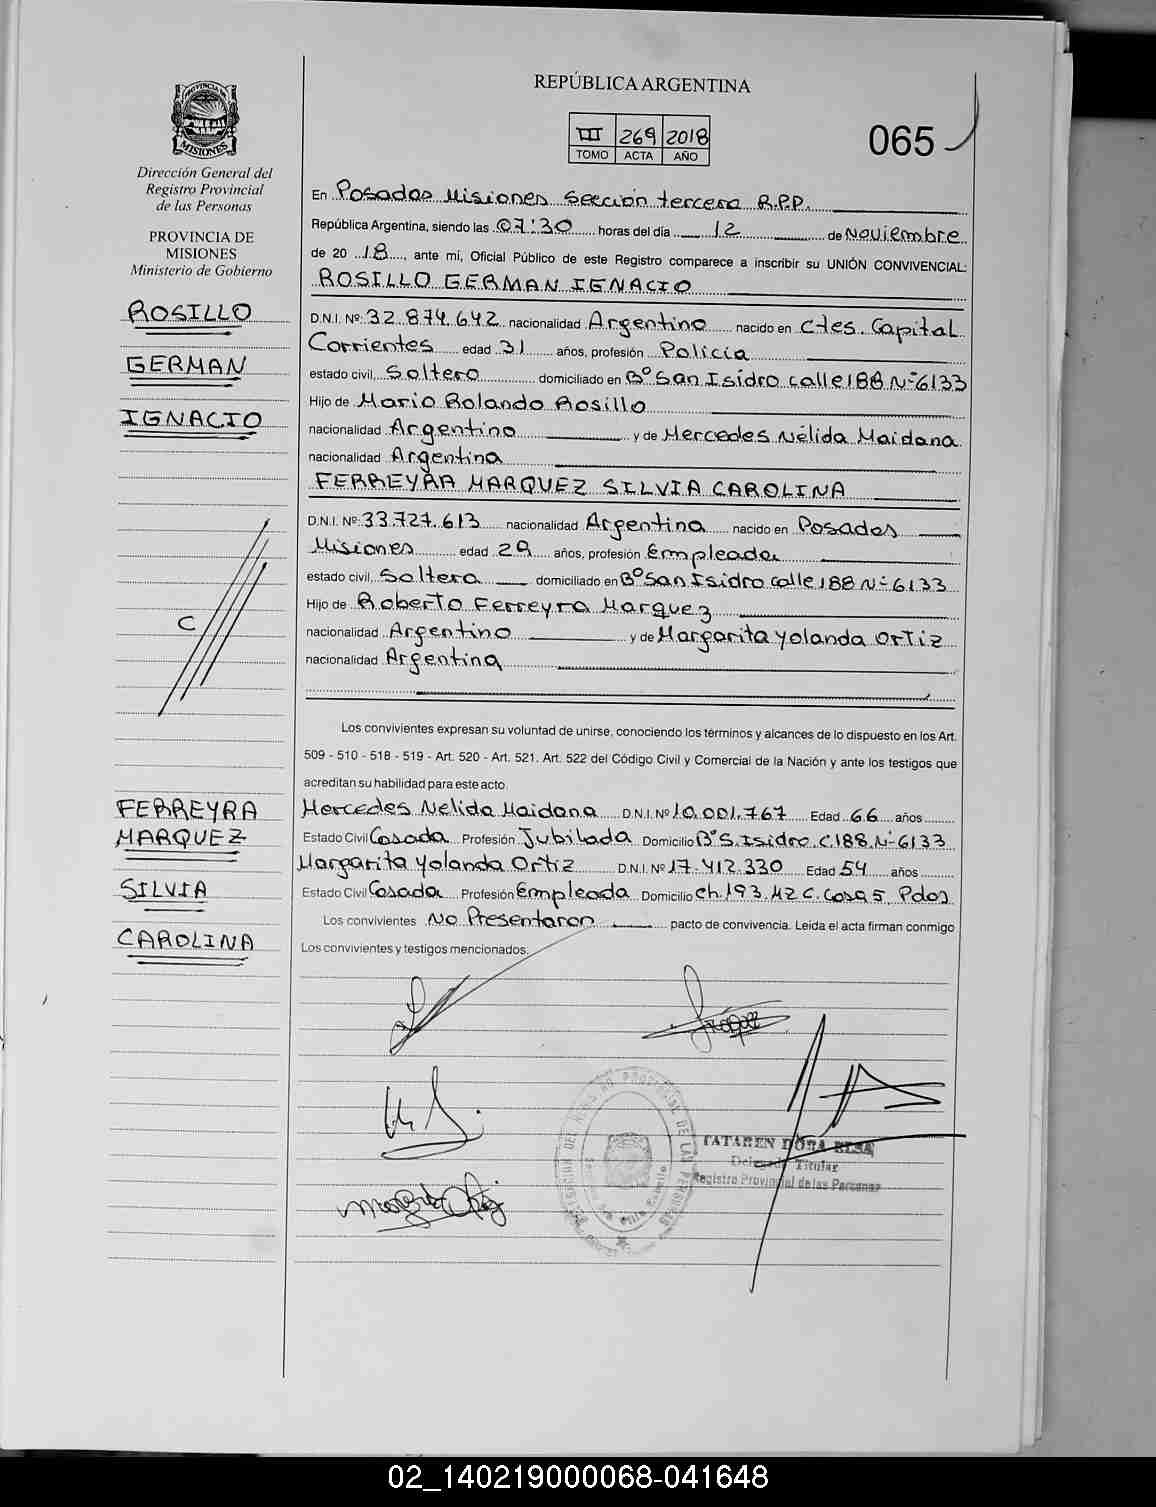 REPÚBLICA ARGENTINA
III 269 2018
TOMO ACTA AÑO
065
Dirección General del
Registro Provincial
de las Personas
PROVINCIA DE
MISIONES
Ministerio de Gobierno
ROSILLO
GERMAN
IGNACIO
C
FERREYRA
MARQUEZ
SILVIA
CAROLINA
En Posadas Misiones Sección tercera R.P.P.
República Argentina, siendo las 07:30 horas del día 12 de Noviembre
de 20 18, ante mí, Oficial Público de este Registro comparece a inscribir su UNIÓN CONVIVENCIAL:
ROSILLO GERMAN IGNACIO
D.N.I. Nº: 32.874.642 nacionalidad Argentino nacido en Ctes. Capital
Corrientes edad 31 años, profesión Policía
estado civil, Soltero domiciliado en Bº San Isidro calle 188 Nº 6133
Hijo de Mario Rolando Rosillo
nacionalidad Argentino y de Mercedes Nélida Maidana
nacionalidad Argentina
FERREYRA MARQUEZ SILVIA CAROLINA
D.N.I. Nº 33.727.613 nacionalidad Argentina nacido en Posadas
Misiones edad 29 años, profesión Empleada
estado civil, Soltera domiciliado en Bº San Isidro calle 188 Nº 6133
Hijo de Roberto Ferreyra Marquez
nacionalidad Argentino y de Margarita Yolanda Ortiz
nacionalidad Argentina
Los convivientes expresan su voluntad de unirse, conociendo los términos y alcances de lo dispuesto en los Art.
509 - 510 - 518 - 519 - Art. 520 - Art. 521. Art. 522 del Código Civil y Comercial de la Nación y ante los testigos que
acreditan su habilidad para este acto.
Mercedes Nelida Maidana D.N.I. Nº 10.001.767 Edad 66 años
Estado Civil Casada Profesión Jubilada Domicilio Bº S. Isidro C.188 Nº 6133
Margarita Yolanda Ortiz D.N.I. Nº 17.412.330 Edad 54 años
Estado Civil Casada Profesión Empleada Domicilio Ch.193 MZ C. Casa 5 Pdas
Los convivientes No Presentaron pacto de convivencia. Leída el acta firman conmigo
Los convivientes y testigos mencionados.
TATAREN DORA
Delegada Titular
Registro Provincial de las Personas
02_140219000068-041648